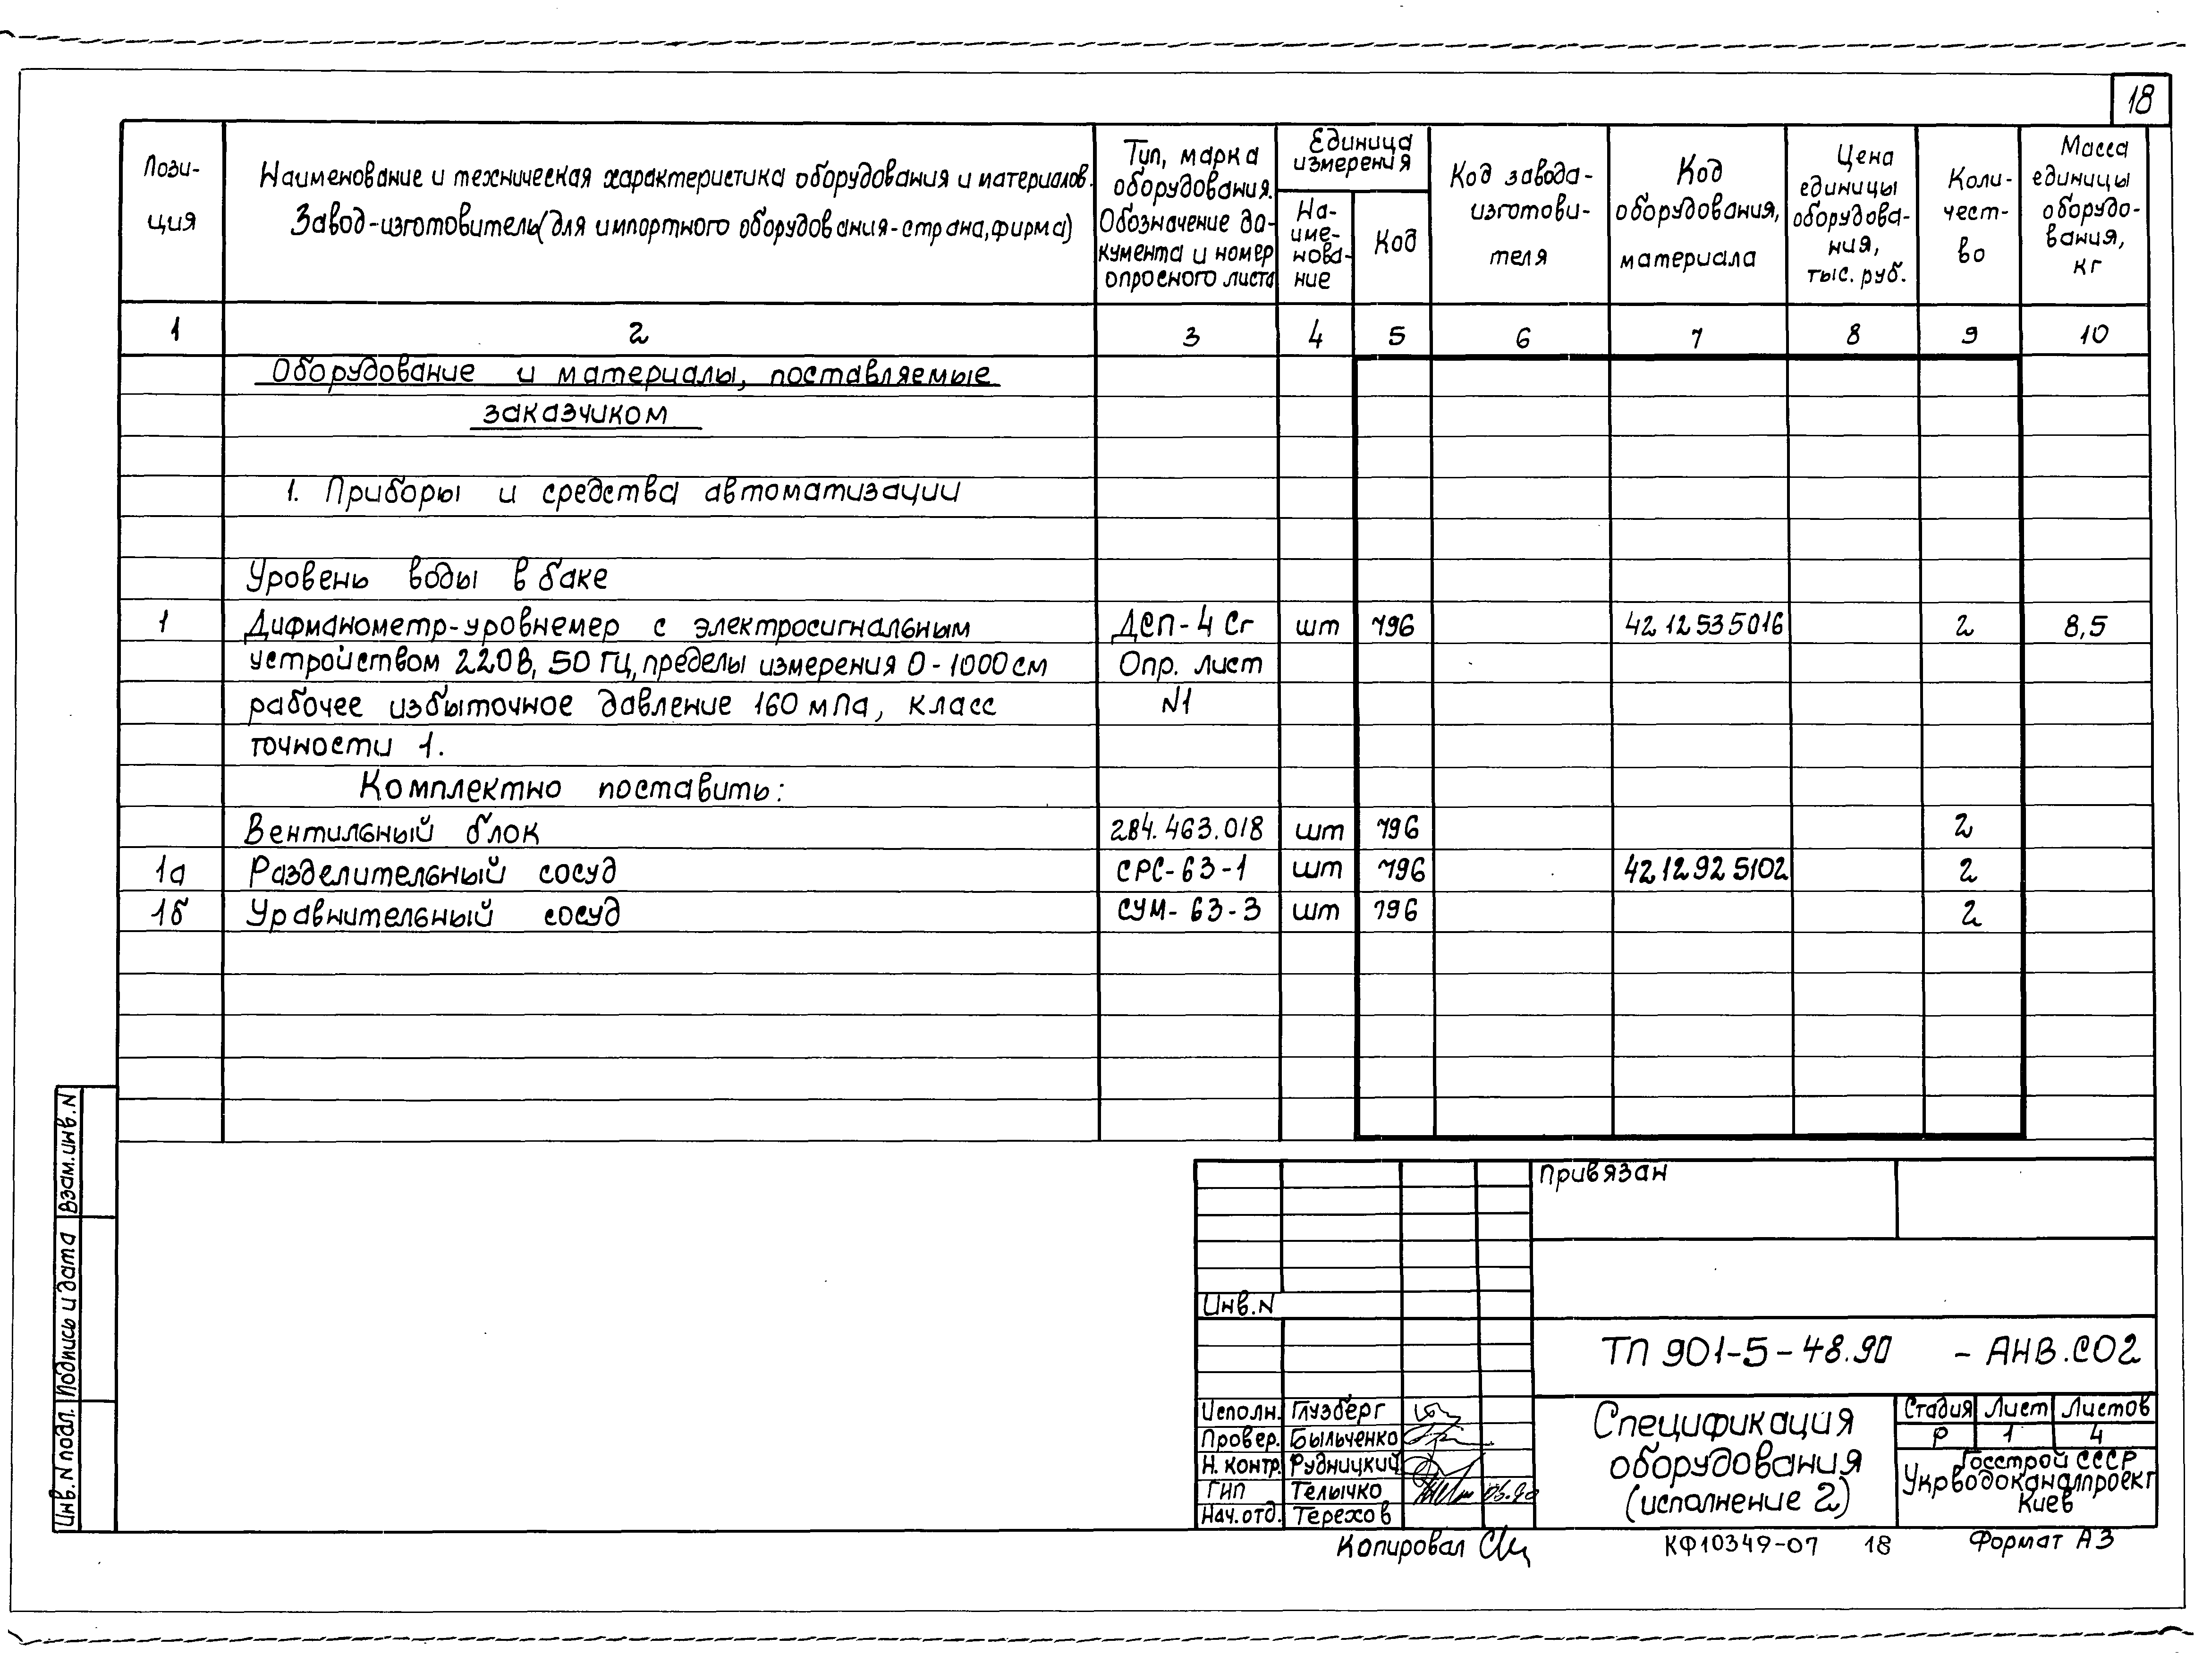 18
Пози-
ция
Наименование и техническая характеристика оборудования и материалов.
Завод-изготовитель (для импортного оборудования-страна, фирма)
Тип, марка
оборудования.
Обозначение до-
кумента и номер
опросного листа
Единица
измерения
На-
име-
нова-
ние
Код
Код завода-
изготови-
теля
Код
оборудования,
материала
Цена
единицы
оборудова-
ния,
тыс. руб.
Коли-
чест-
во
Масса
единицы
оборудо-
вания,
кг
1 2 3 4 5 6 7 8 9 10
Оборудование и материалы, поставляемые
заказчиком
1. Приборы и средства автоматизации
Уровень воды в баке
1 Дифманометр-уровнемер с электросигнальным ДСП-4 Сг шт 796 42 12 53 5016 2 8,5
устройством 220В, 50 Гц, пределы измерения 0-1000 см Опр. лист
рабочее избыточное давление 160 мПа, класс N1
точности 1.
Комплектно поставить:
Вентильный блок 284.463.018 шт 796 2
1а Разделительный сосуд СРС-63-1 шт 796 42 12 92 5102 2
1б Уравнительный сосуд СУМ-63-3 шт 796 2
Взам. инв. N
Подпись и дата
Инв. N подл.
Привязан
Инв. N
ТП 901-5-48.90 - АНВ.СО2
Исполн. Глузберг
Провер. Быльченко
Н. контр. Рудницкий
ГИП Телычко 06.90
Нач. отд. Терехов
Спецификация
оборудования
(исполнение 2)
Стадия Лист Листов
Р 1 4
Госстрой СССР
Укрводоканалпроект
Киев
Копировал
КФ10349-07 18
Формат А3